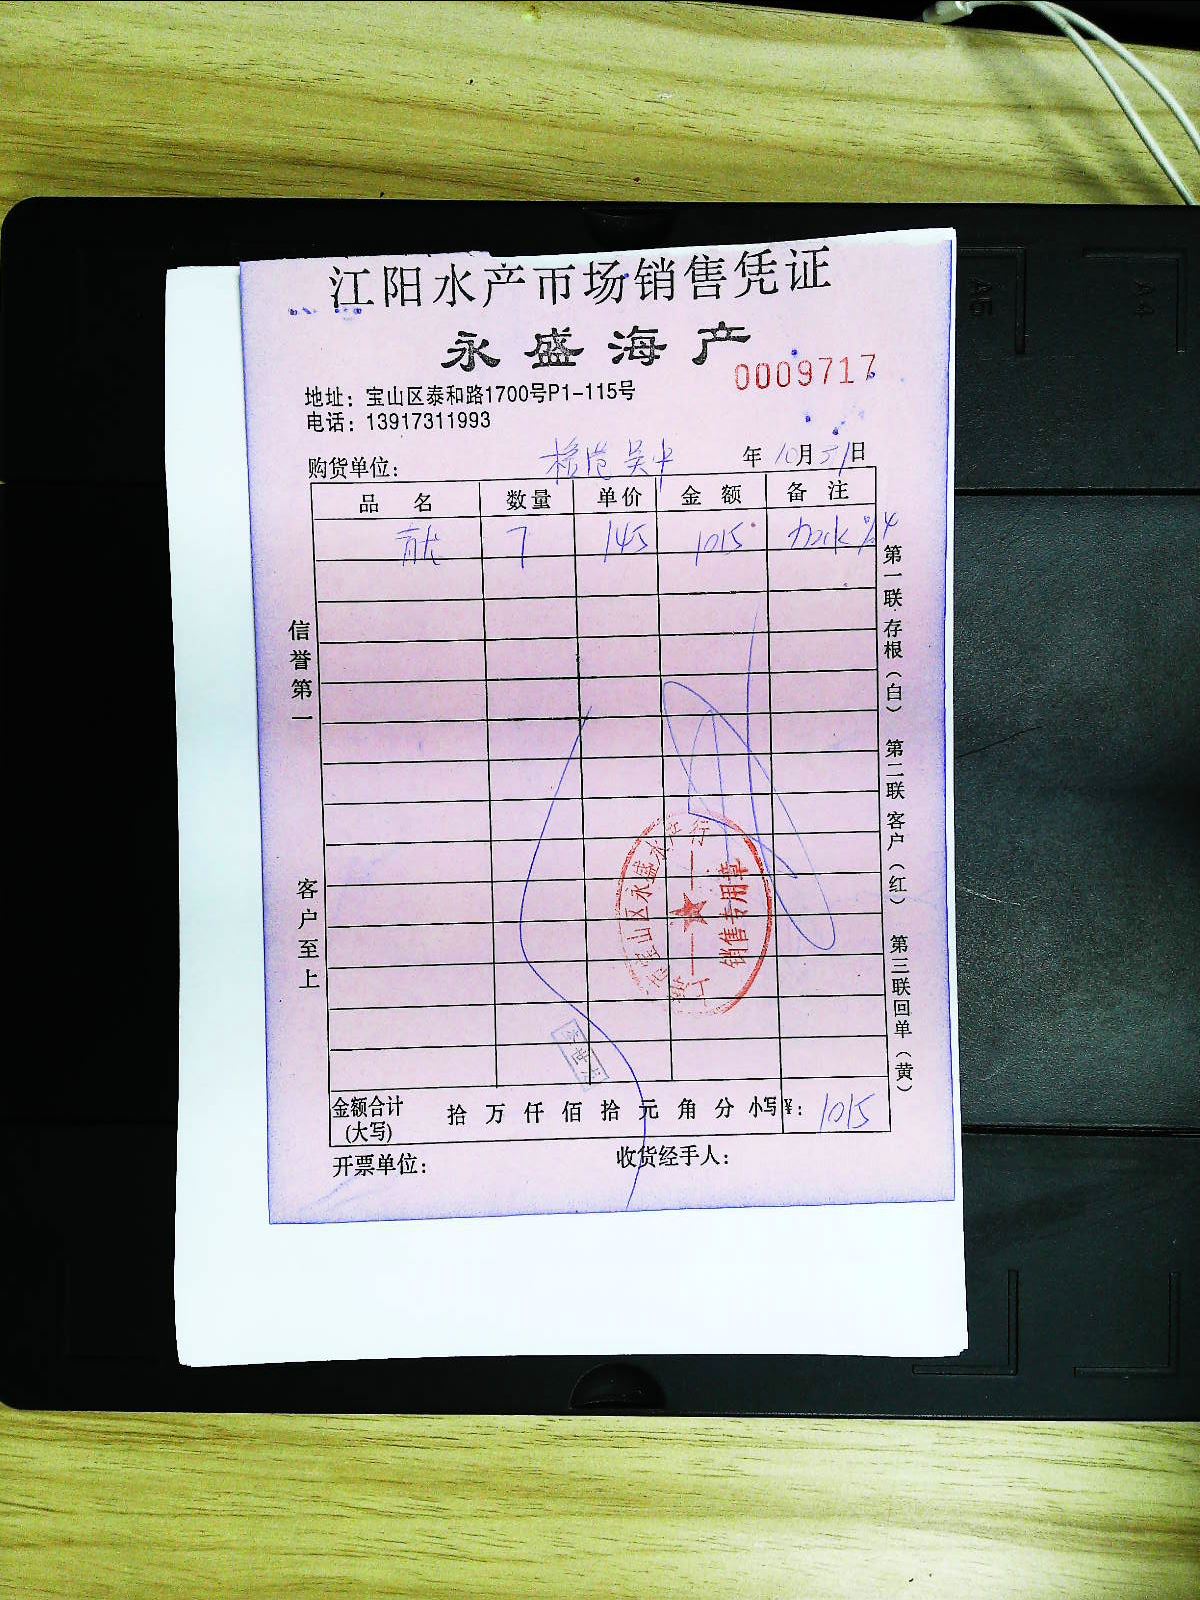 江阳水产市场销售凭证
永盛海产
0009717
地址：宝山区泰和路1700号P1-115号
电话：13917311993
购货单位： 吴中 年 10月31日
品 名 数量 单价 金 额 备 注
青龙 7 145 1015
信誉第一
客户至上
第一联·存根（白） 第二联 客户（红） 第三联回单（黄）
宝山区永盛水产行
销售专用章
金额合计(大写) 拾 万 仟 佰 拾 元 角 分 小写¥： 1015
开票单位： 收货经手人：
A5
A4